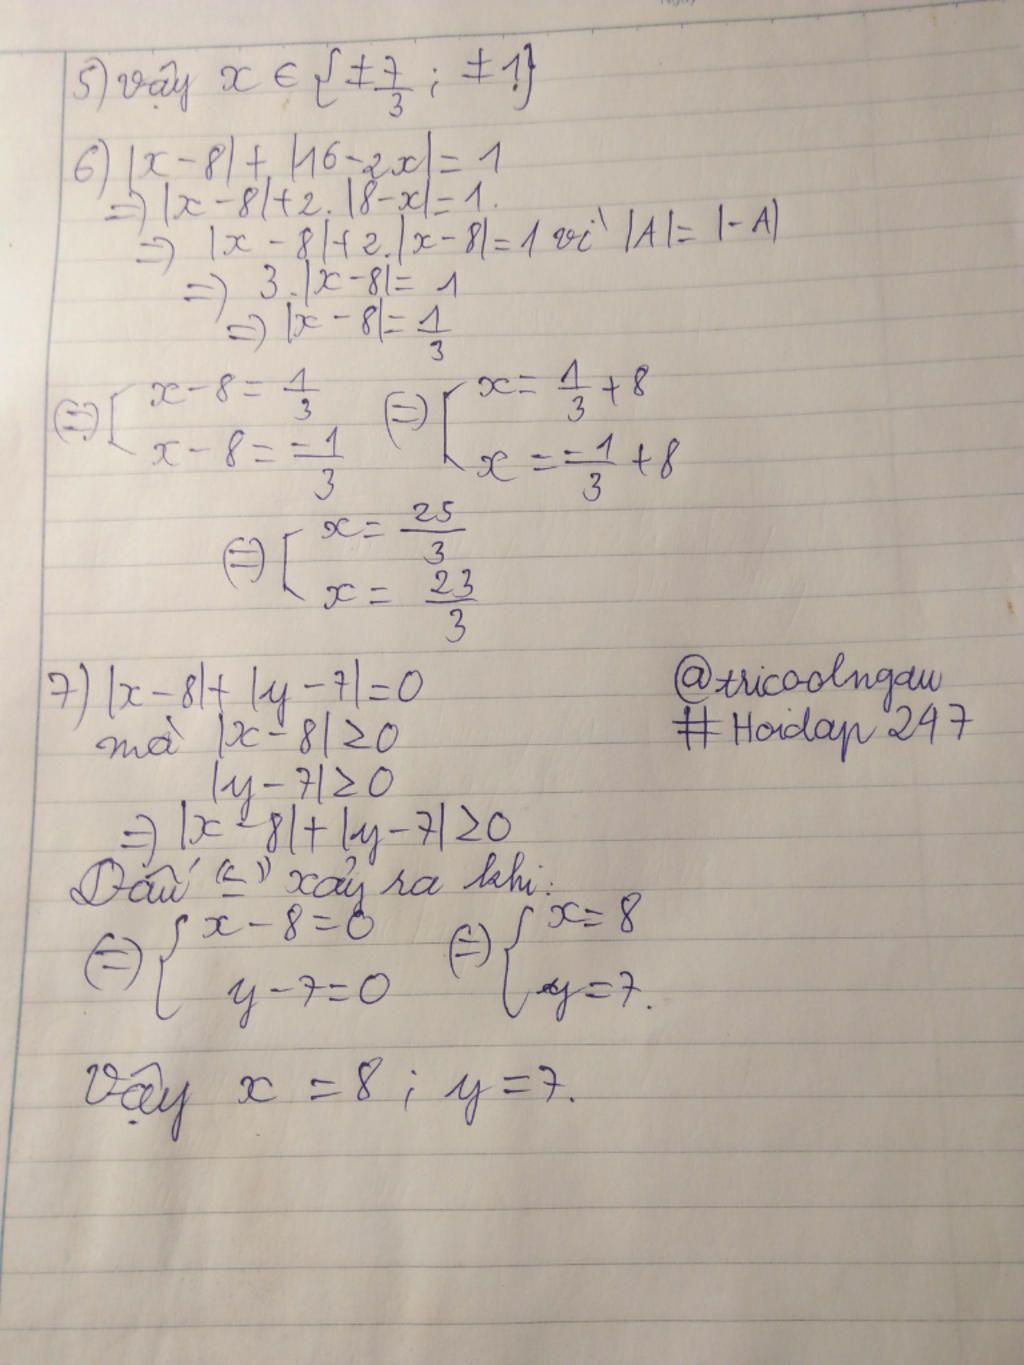 5) Vậy x ∈ {±7/3 ; ±1}
6) |x-8| + |16-2x| = 1
=) |x-8| + 2. |8-x| = 1.
=) |x-8| + 2. |x-8| = 1 vì |A| = |-A|
=) 3. |x-8| = 1
=) |x-8| = 1/3
(=) [ x-8 = 1/3 (=) [ x = 1/3 + 8
x-8 = -1/3 x = -1/3 + 8
(=) [ x = 25/3
x = 23/3
7) |x-8| + |y-7| = 0
mà |x-8| ≥ 0
|y-7| ≥ 0
=) |x-8| + |y-7| ≥ 0
Dấu "=" xảy ra khi:
(=) { x-8=0 (=) { x=8
y-7=0 y=7.
Vậy x = 8 ; y = 7.
@tricoolngau
# Hoidap 247